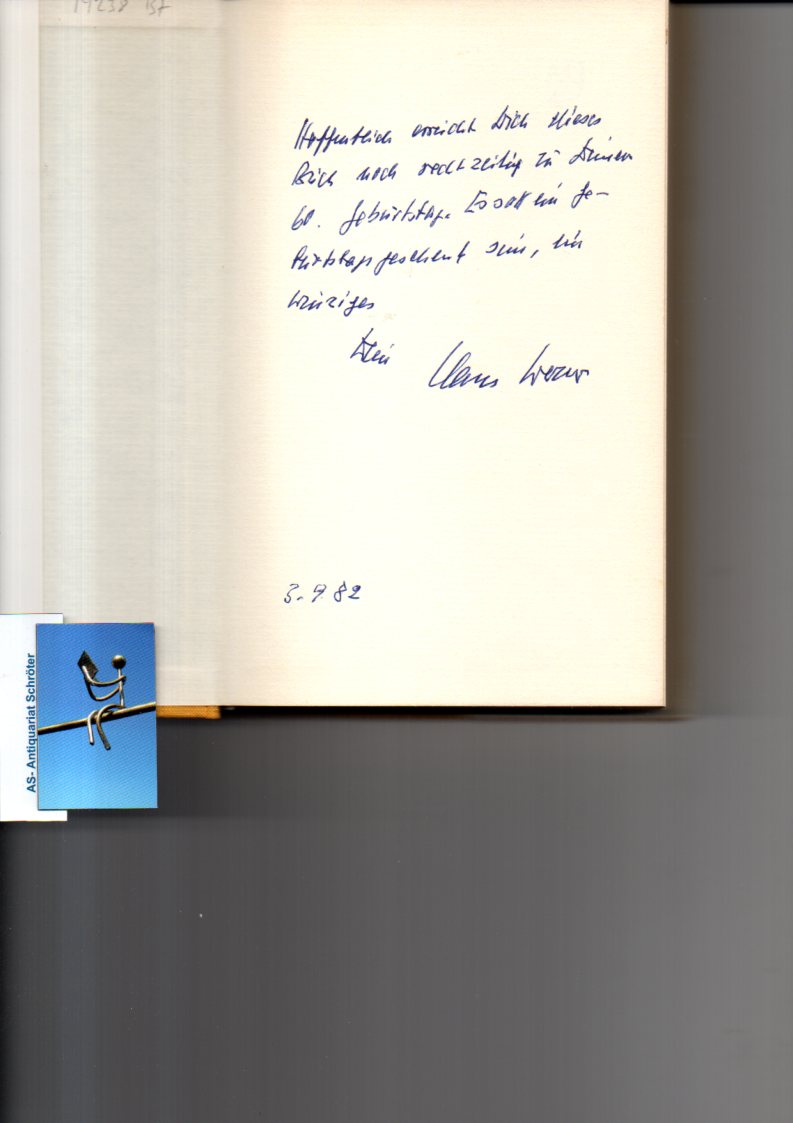 19238 Bf
Hoffentlich erreicht Dich dieses
Buch noch rechtzeitig zu Deinem
60. Geburtstag. Es soll ein Ge-
burtstagsgeschenk sein, ein
winziges
Dein
3. 9. 82
AS- Antiquariat Schröter